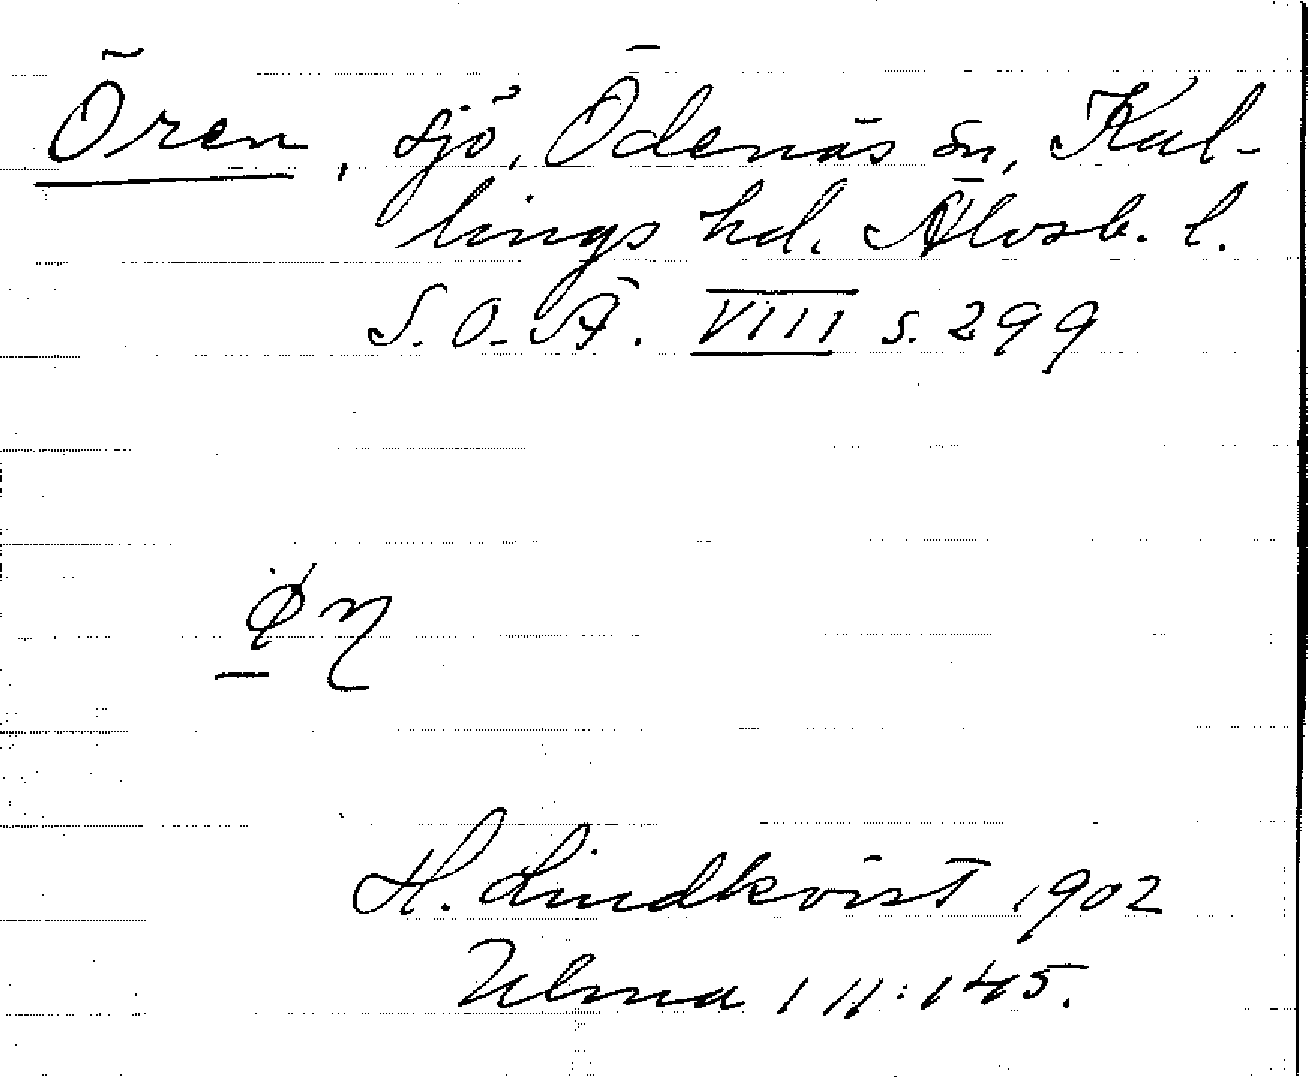 Ören, sjö, Ödenäs sn, Kul-
lings hd. Älvsb. l.
S.O.Ä. VIII s. 299
H. Lindkvist 1902
Ulma 111:145.